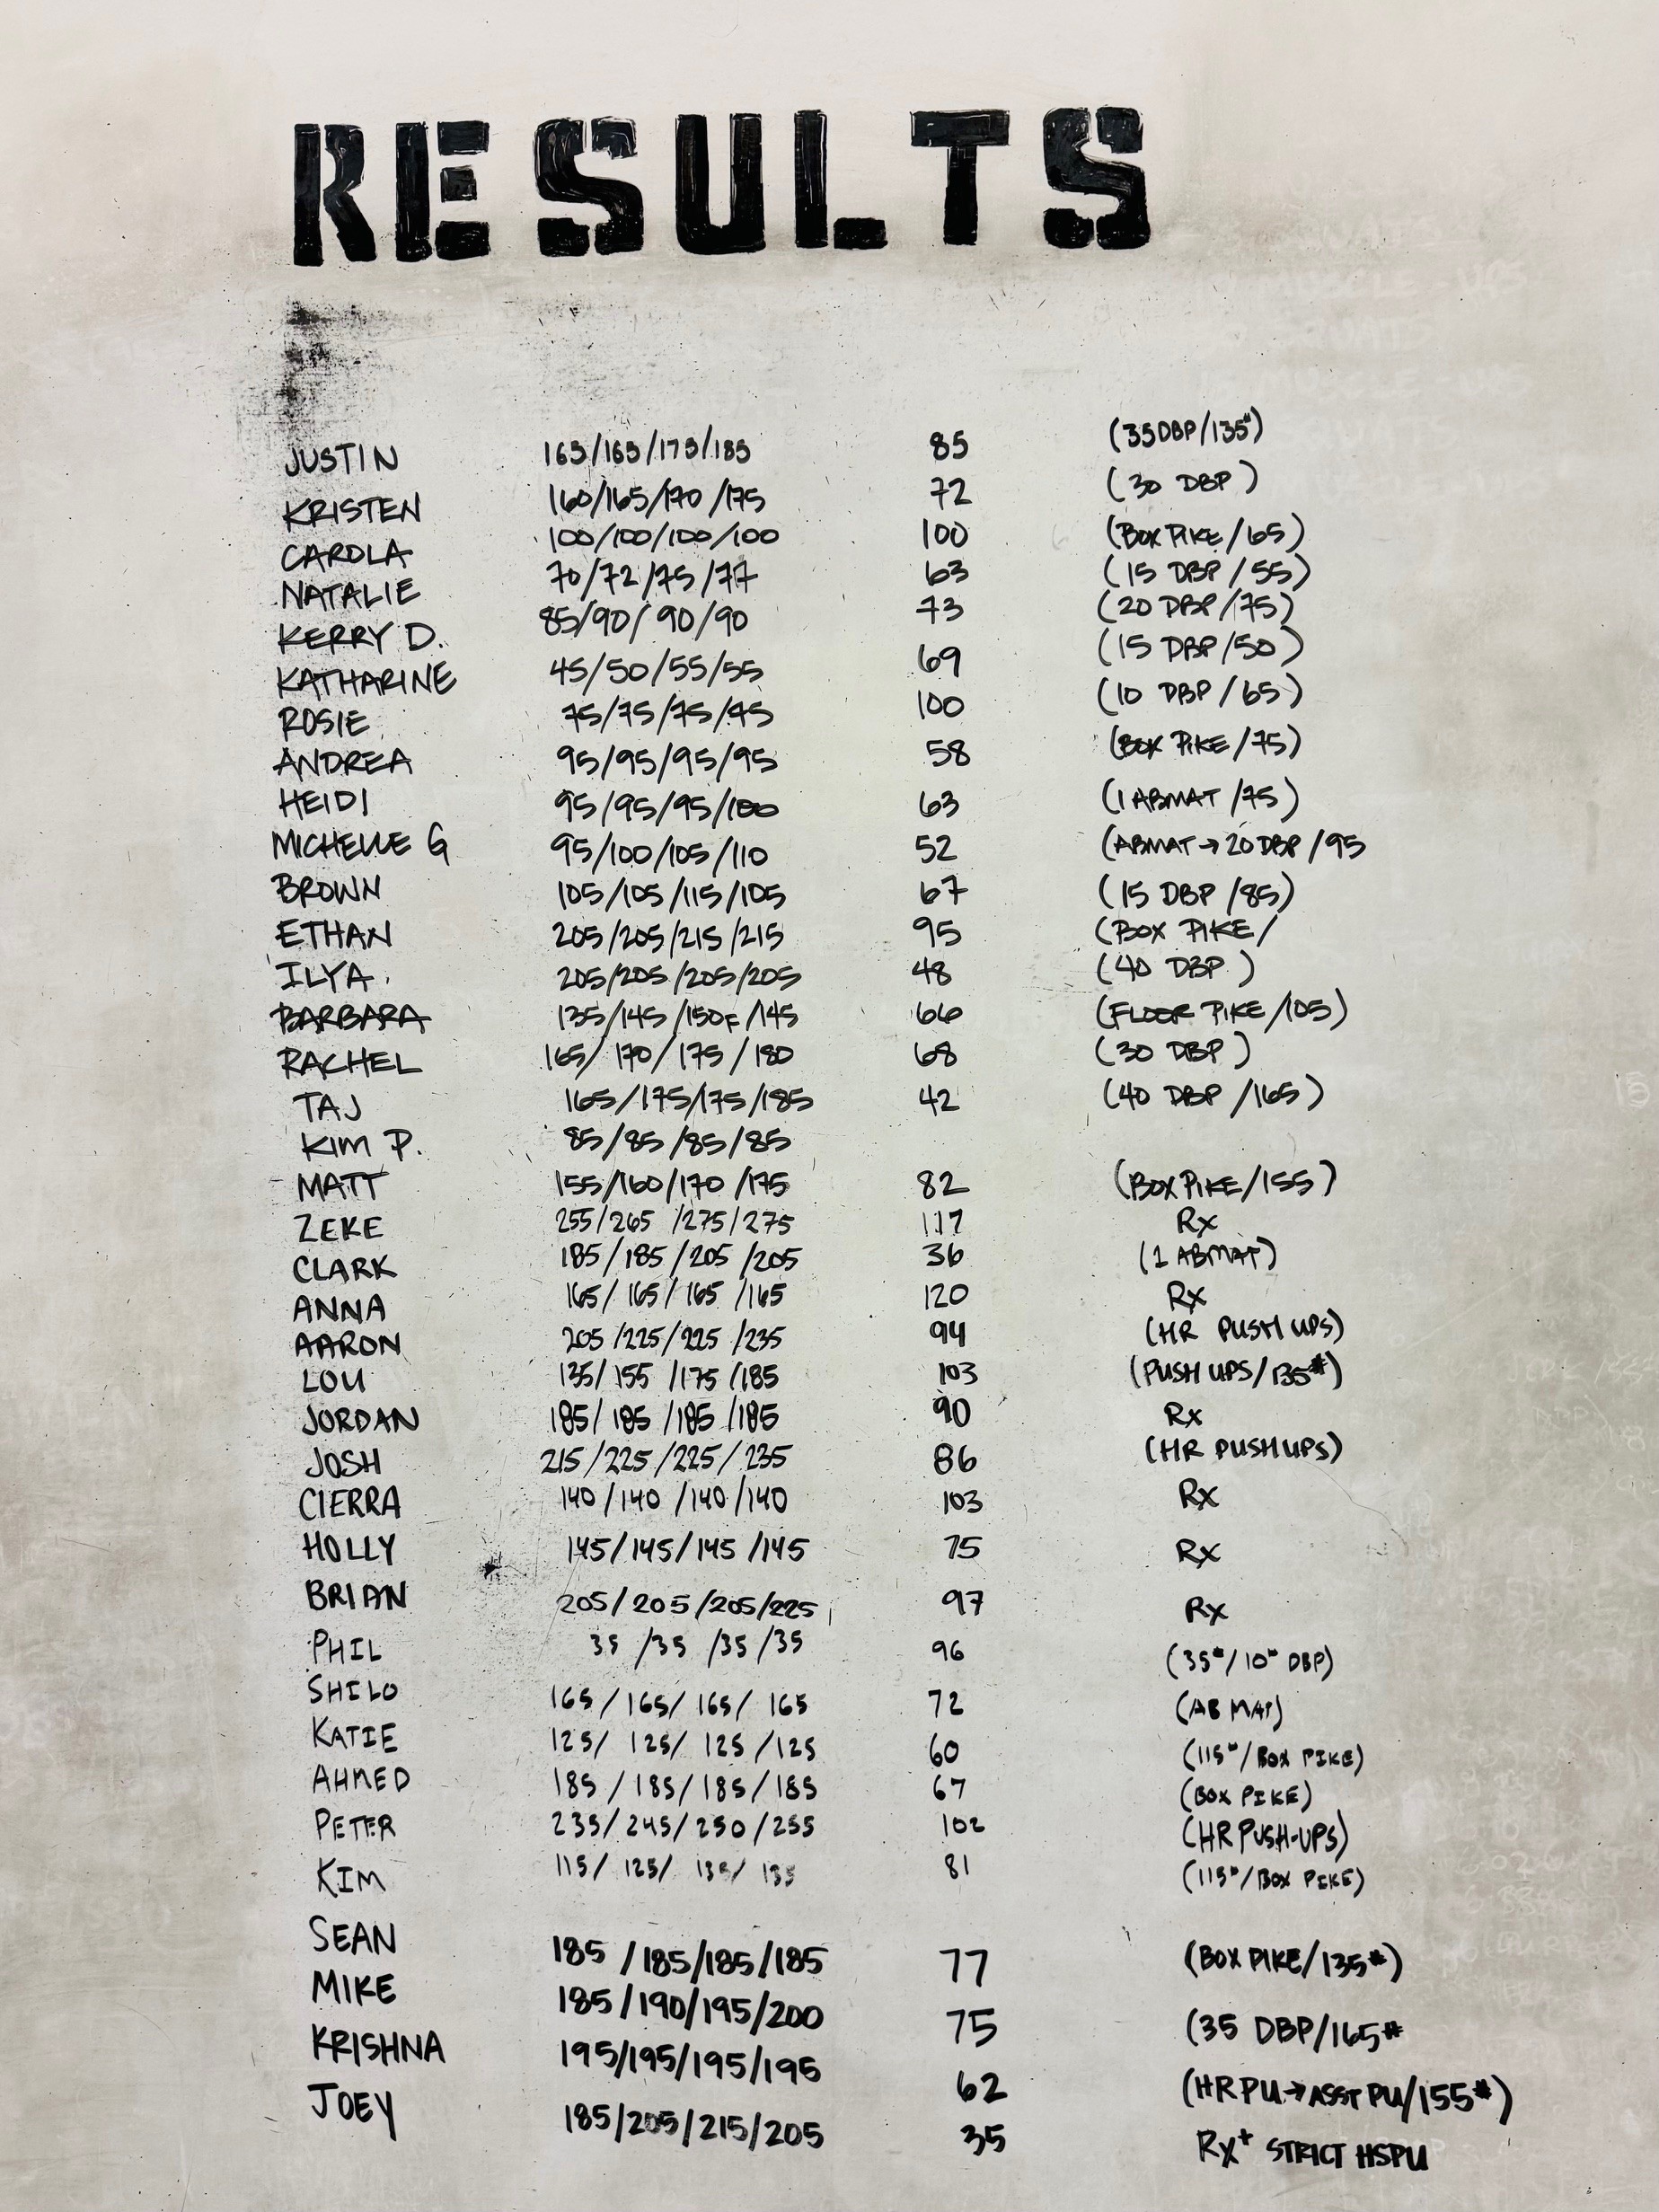 RESULTS
JUSTIN 165/165/175/185 85 (35DBP/135#)
KRISTEN 160/165/170/175 72 (30 DBP)
CAROLA 100/100/100/100 100 (BOX PIKE/65)
NATALIE 70/72/75/77 63 (15 DBP/55)
KERRY D. 85/90/90/90 73 (20 DBP/75)
KATHARINE 45/50/55/55 69 (15 DBP/50)
ROSIE 75/75/75/75 100 (10 DBP/65)
ANDREA 95/95/95/95 58 (BOX PIKE/75)
HEIDI 95/95/95/100 63 (1 ABMAT/75)
MICHELLE G 95/100/105/110 52 (ABMAT→20 DBP/95
BROWN 105/105/115/105 67 (15 DBP/85)
ETHAN 205/205/215/215 95 (BOX PIKE/
ILYA 205/205/205/205 48 (40 DBP)
BARBARA 135/145/150F/145 66 (FLOOR PIKE/105)
RACHEL 165/170/175/180 68 (30 DBP)
TAJ 165/175/175/185 42 (40 DBP/165)
KIM P. 85/85/85/85
MATT 155/160/170/175 82 (BOX PIKE/155)
ZEKE 255/265/275/275 117 Rx
CLARK 185/185/205/205 36 (1 ABMAT)
ANNA 165/165/165/165 120 Rx
AARON 205/225/225/235 94 (HR PUSH UPS)
LOU 135/155/175/185 103 (PUSH UPS/135#)
JORDAN 185/185/185/185 90 Rx
JOSH 215/225/225/235 86 (HR PUSH UPS)
CIERRA 140/140/140/140 103 Rx
HOLLY 145/145/145/145 75 Rx
BRIAN 205/205/205/225 97 Rx
PHIL 35/35/35/35 96 (35#/10# DBP)
SHILO 165/165/165/165 72 (AB MAT)
KATIE 125/125/125/125 60 (115#/BOX PIKE)
AHMED 185/185/185/185 67 (BOX PIKE)
PETER 235/245/250/255 102 (HR PUSH-UPS)
KIM 115/125/135/135 81 (115#/BOX PIKE)
SEAN 185/185/185/185 77 (BOX PIKE/135#)
MIKE 185/190/195/200 75 (35 DBP/165#
KRISHNA 195/195/195/195 62 (HR PU→ASST PU/155#)
JOEY 185/205/215/205 35 Rx+ STRICT HSPU